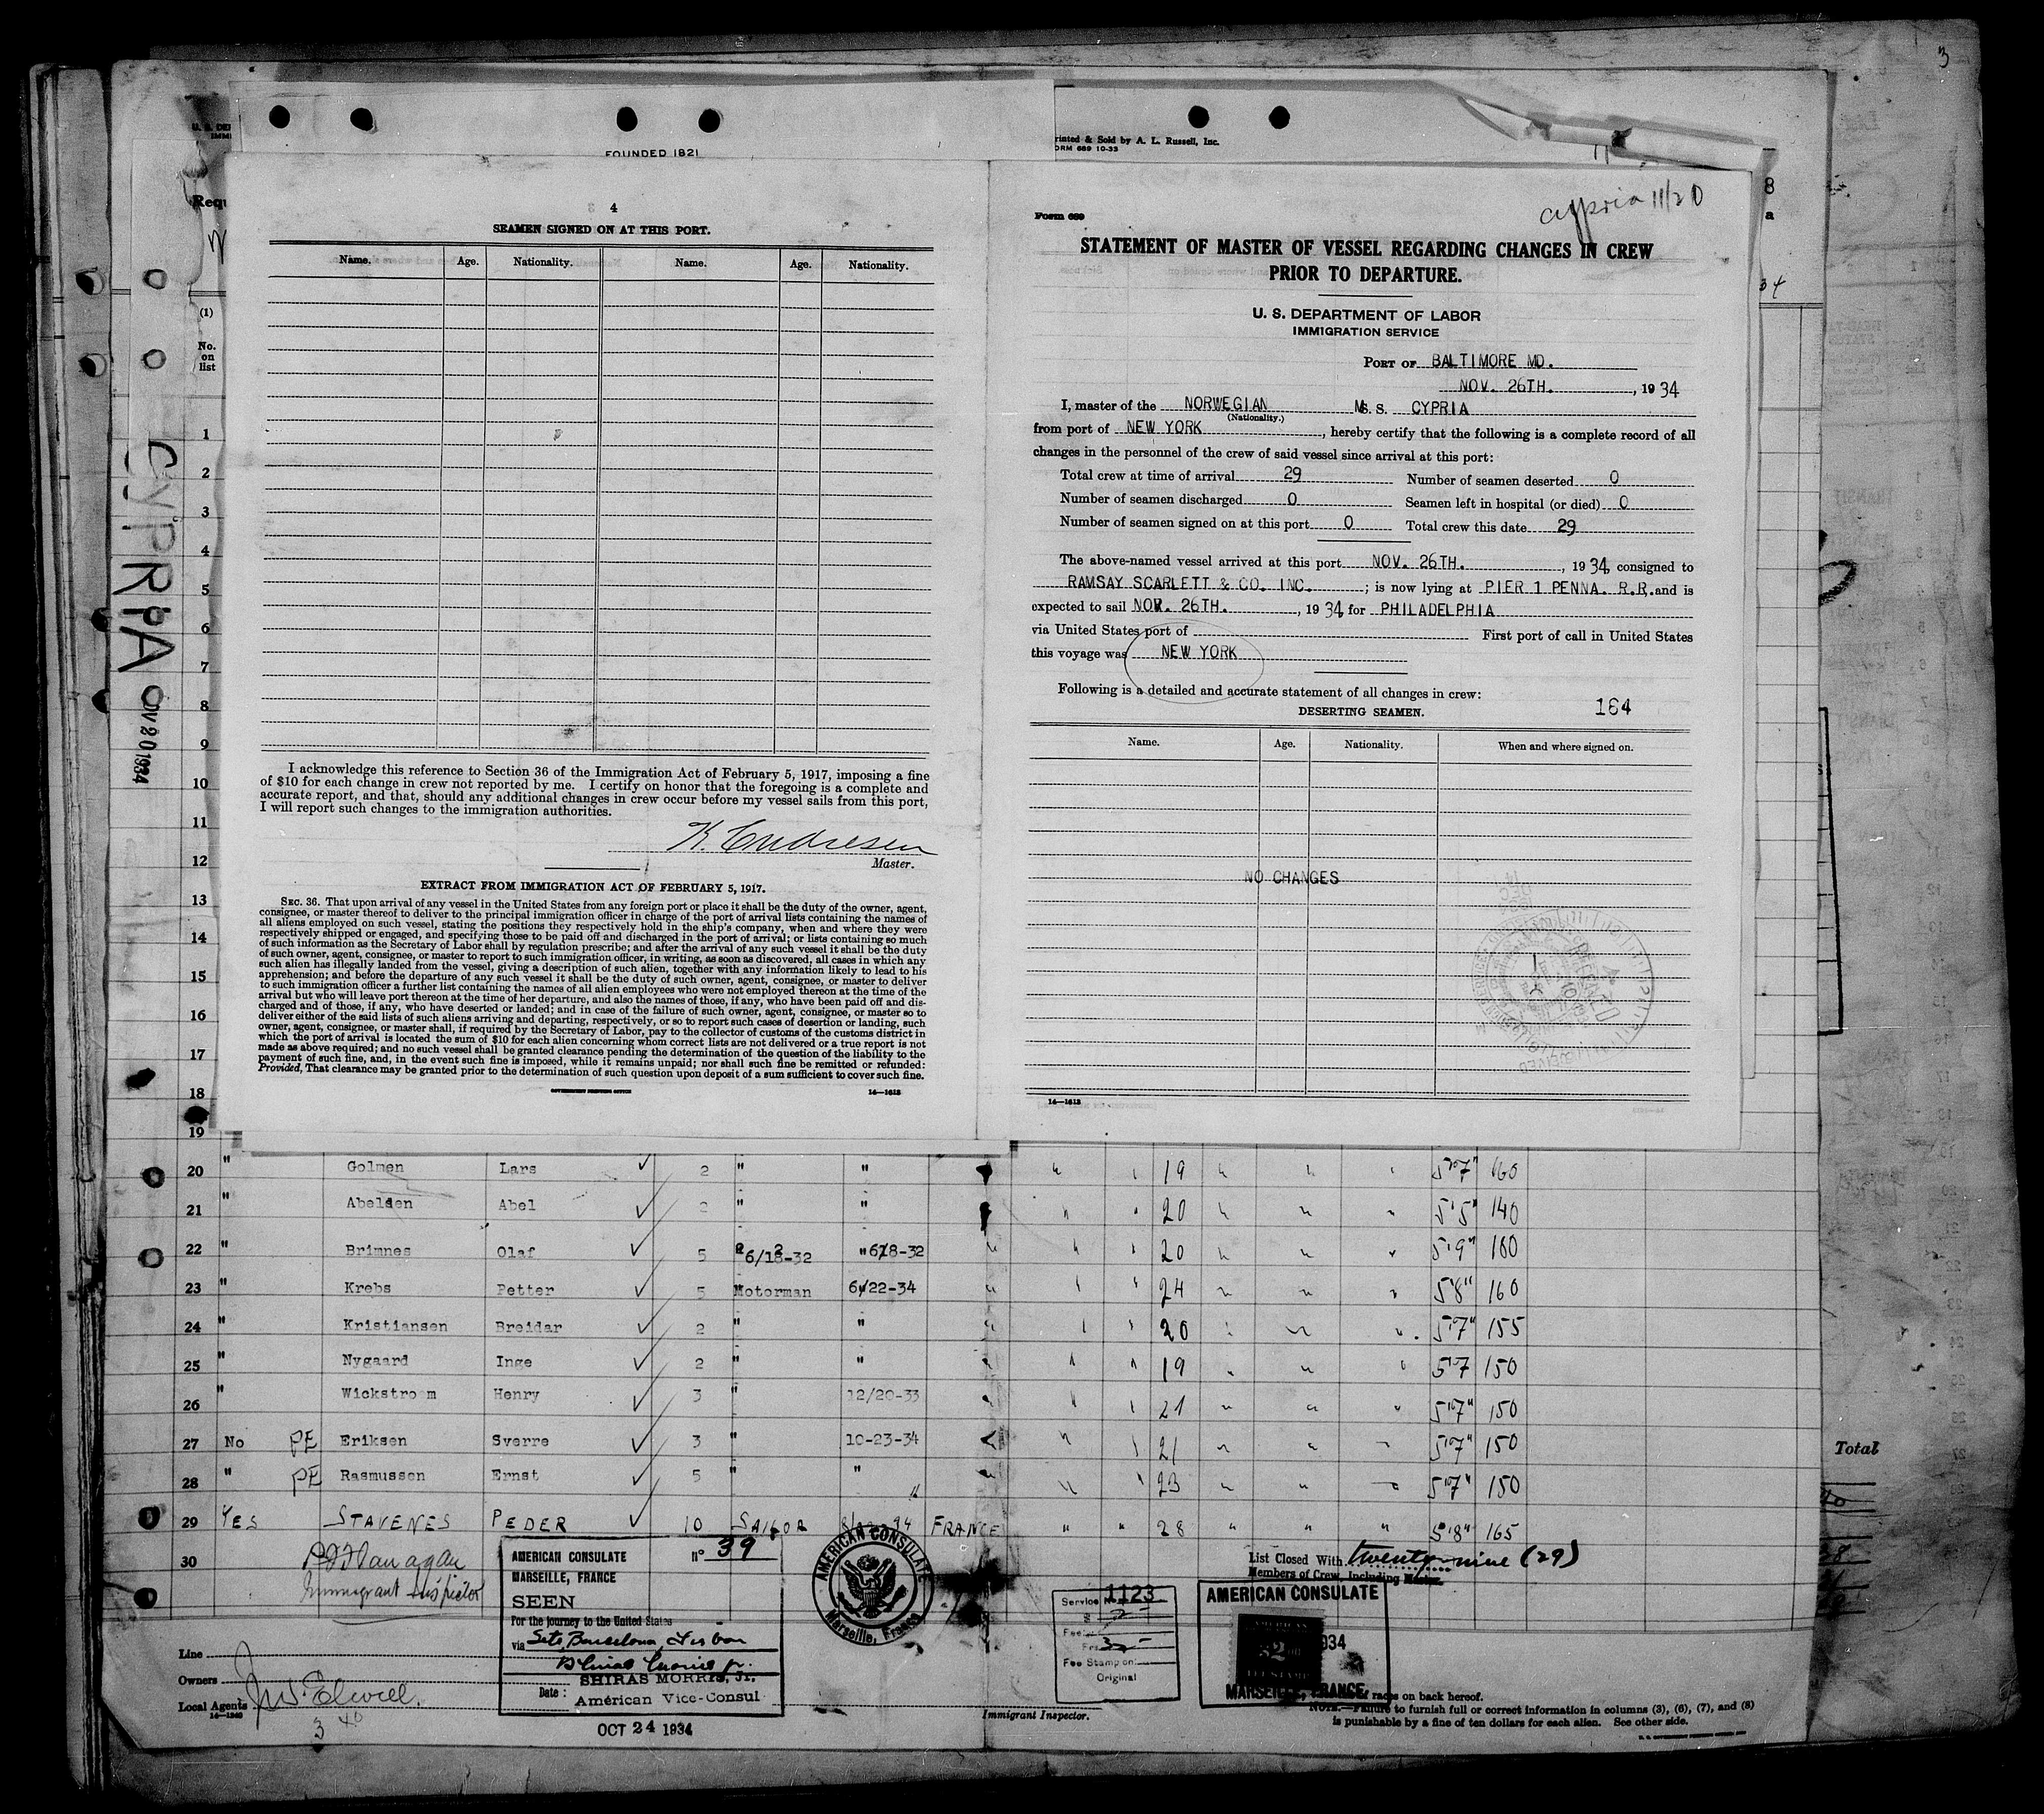 3
FOUNDED 1821
Printed & Sold by A. L. Russell, Inc.
FORM 689 10-33
4
SEAMEN SIGNED ON AT THIS PORT.
Name. Age. Nationality. Name. Age. Nationality.
I acknowledge this reference to Section 36 of the Immigration Act of February 5, 1917, imposing a fine
of $10 for each change in crew not reported by me. I certify on honor that the foregoing is a complete and
accurate report, and that, should any additional changes in crew occur before my vessel sails from this port,
I will report such changes to the immigration authorities.
K. Endresen
Master.
EXTRACT FROM IMMIGRATION ACT OF FEBRUARY 5, 1917.
SEC. 36. That upon arrival of any vessel in the United States from any foreign port or place it shall be the duty of the owner, agent,
consignee, or master thereof to deliver to the principal immigration officer in charge of the port of arrival lists containing the names of
all aliens employed on such vessel, stating the positions they respectively hold in the ship's company, when and where they were
respectively shipped or engaged, and specifying those to be paid off and discharged in the port of arrival; or lists containing so much
of such information as the Secretary of Labor shall by regulation prescribe; and after the arrival of any such vessel it shall be the duty
of such owner, agent, consignee, or master to report to such immigration officer, in writing, as soon as discovered, all cases in which any
such alien has illegally landed from the vessel, giving a description of such alien, together with any information likely to lead to his
apprehension; and before the departure of any such vessel it shall be the duty of such owner, agent, consignee, or master to deliver
to such immigration officer a further list containing the names of all alien employees who were not employed thereon at the time of the
arrival but who will leave port thereon at the time of her departure, and also the names of those, if any, who have been paid off and dis-
charged and of those, if any, who have deserted or landed; and in case of the failure of such owner, agent, consignee, or master so to
deliver either of the said lists of such aliens arriving and departing, respectively, or so to report such cases of desertion or landing, such
owner, agent, consignee, or master shall, if required by the Secretary of Labor, pay to the collector of customs of the customs district in
which the port of arrival is located the sum of $10 for each alien concerning whom correct lists are not delivered or a true report is not
made as above required; and no such vessel shall be granted clearance pending the determination of the question of the liability to the
payment of such fine, and, in the event such fine is imposed, while it remains unpaid; nor shall such fine be remitted or refunded:
Provided, That clearance may be granted prior to the determination of such question upon deposit of a sum sufficient to cover such fine.
GOVERNMENT PRINTING OFFICE 14—1618
Cypria 11/20
Form 689
STATEMENT OF MASTER OF VESSEL REGARDING CHANGES IN CREW
PRIOR TO DEPARTURE.
U. S. DEPARTMENT OF LABOR
IMMIGRATION SERVICE
PORT OF BALTIMORE MD.
NOV. 26TH. , 1934
I, master of the NORWEGIAN M. S. CYPRIA
(Nationality.)
from port of NEW YORK , hereby certify that the following is a complete record of all
changes in the personnel of the crew of said vessel since arrival at this port:
Total crew at time of arrival 29 Number of seamen deserted 0
Number of seamen discharged 0 Seamen left in hospital (or died) 0
Number of seamen signed on at this port 0 Total crew this date 29
The above-named vessel arrived at this port NOV. 26TH. , 1934, consigned to
RAMSAY SCARLETT & CO. INC. ; is now lying at PIER 1 PENNA. R.R. and is
expected to sail NOV. 26TH. , 1934 for PHILADELPHIA
via United States port of First port of call in United States
this voyage was NEW YORK
Following is a detailed and accurate statement of all changes in crew:
DESERTING SEAMEN. 164
Name. Age. Nationality. When and where signed on.
NO CHANGES
14—1618
CYPRIA
NOV 20 1934
(1)
No.
on
list
1
2
3
4
5
6
7
8
9
10
11
12
13
14
15
16
17
18
19
20 " Golmen Lars ✓ 2 " " 19 5'7" 160
21 " Abelsen Abel ✓ 2 " " 20 5'5" 140
22 " Brimnes Olaf ✓ 5 6/18-32 " 6/18-32 20 5'9" 160
23 " Krebs Petter ✓ 5 Motorman 6/22-34 24 5'8" 160
24 " Kristiansen Breidar ✓ 2 " " 20 5'7" 155
25 " Nygaard Inge ✓ 2 " " 19 5'7 150
26 " Wickstrom Henry ✓ 3 " 12/20-33 21 5'7" 150
27 No PE Eriksen Sverre ✓ 3 " 10-23-34 21 5'7" 150
28 " PE Rasmussen Ernst ✓ 5 " " 23 5'7" 150
29 YES STAVENES PEDER ✓ 10 SAILOR FRANCE " " 28 " " " 5'8" 165
30
Flanagan
Immigrant Inspector
List Closed With twenty-nine (29)
Members of Crew, Including Master
AMERICAN CONSULATE No 39
MARSEILLE, FRANCE
SEEN
For the journey to the United States
via Sete, Barcelona, Lisbon
Shiras Morris Jr.
SHIRAS MORRIS, Jr.
Date: American Vice-Consul
OCT 24 1934
AMERICAN CONSULATE
Marseille, France
Service No 1123
Fee Stamp on
Original
AMERICAN CONSULATE
$2
1934
MARSEILLE, FRANCE
Line
Owners
Local Agents J. W. Elwell
14—1240
3
Immigrant Inspector.
races on back hereof.
NOTE.—Failure to furnish full or correct information in columns (3), (6), (7), and (8)
is punishable by a fine of ten dollars for each alien. See other side.
Total